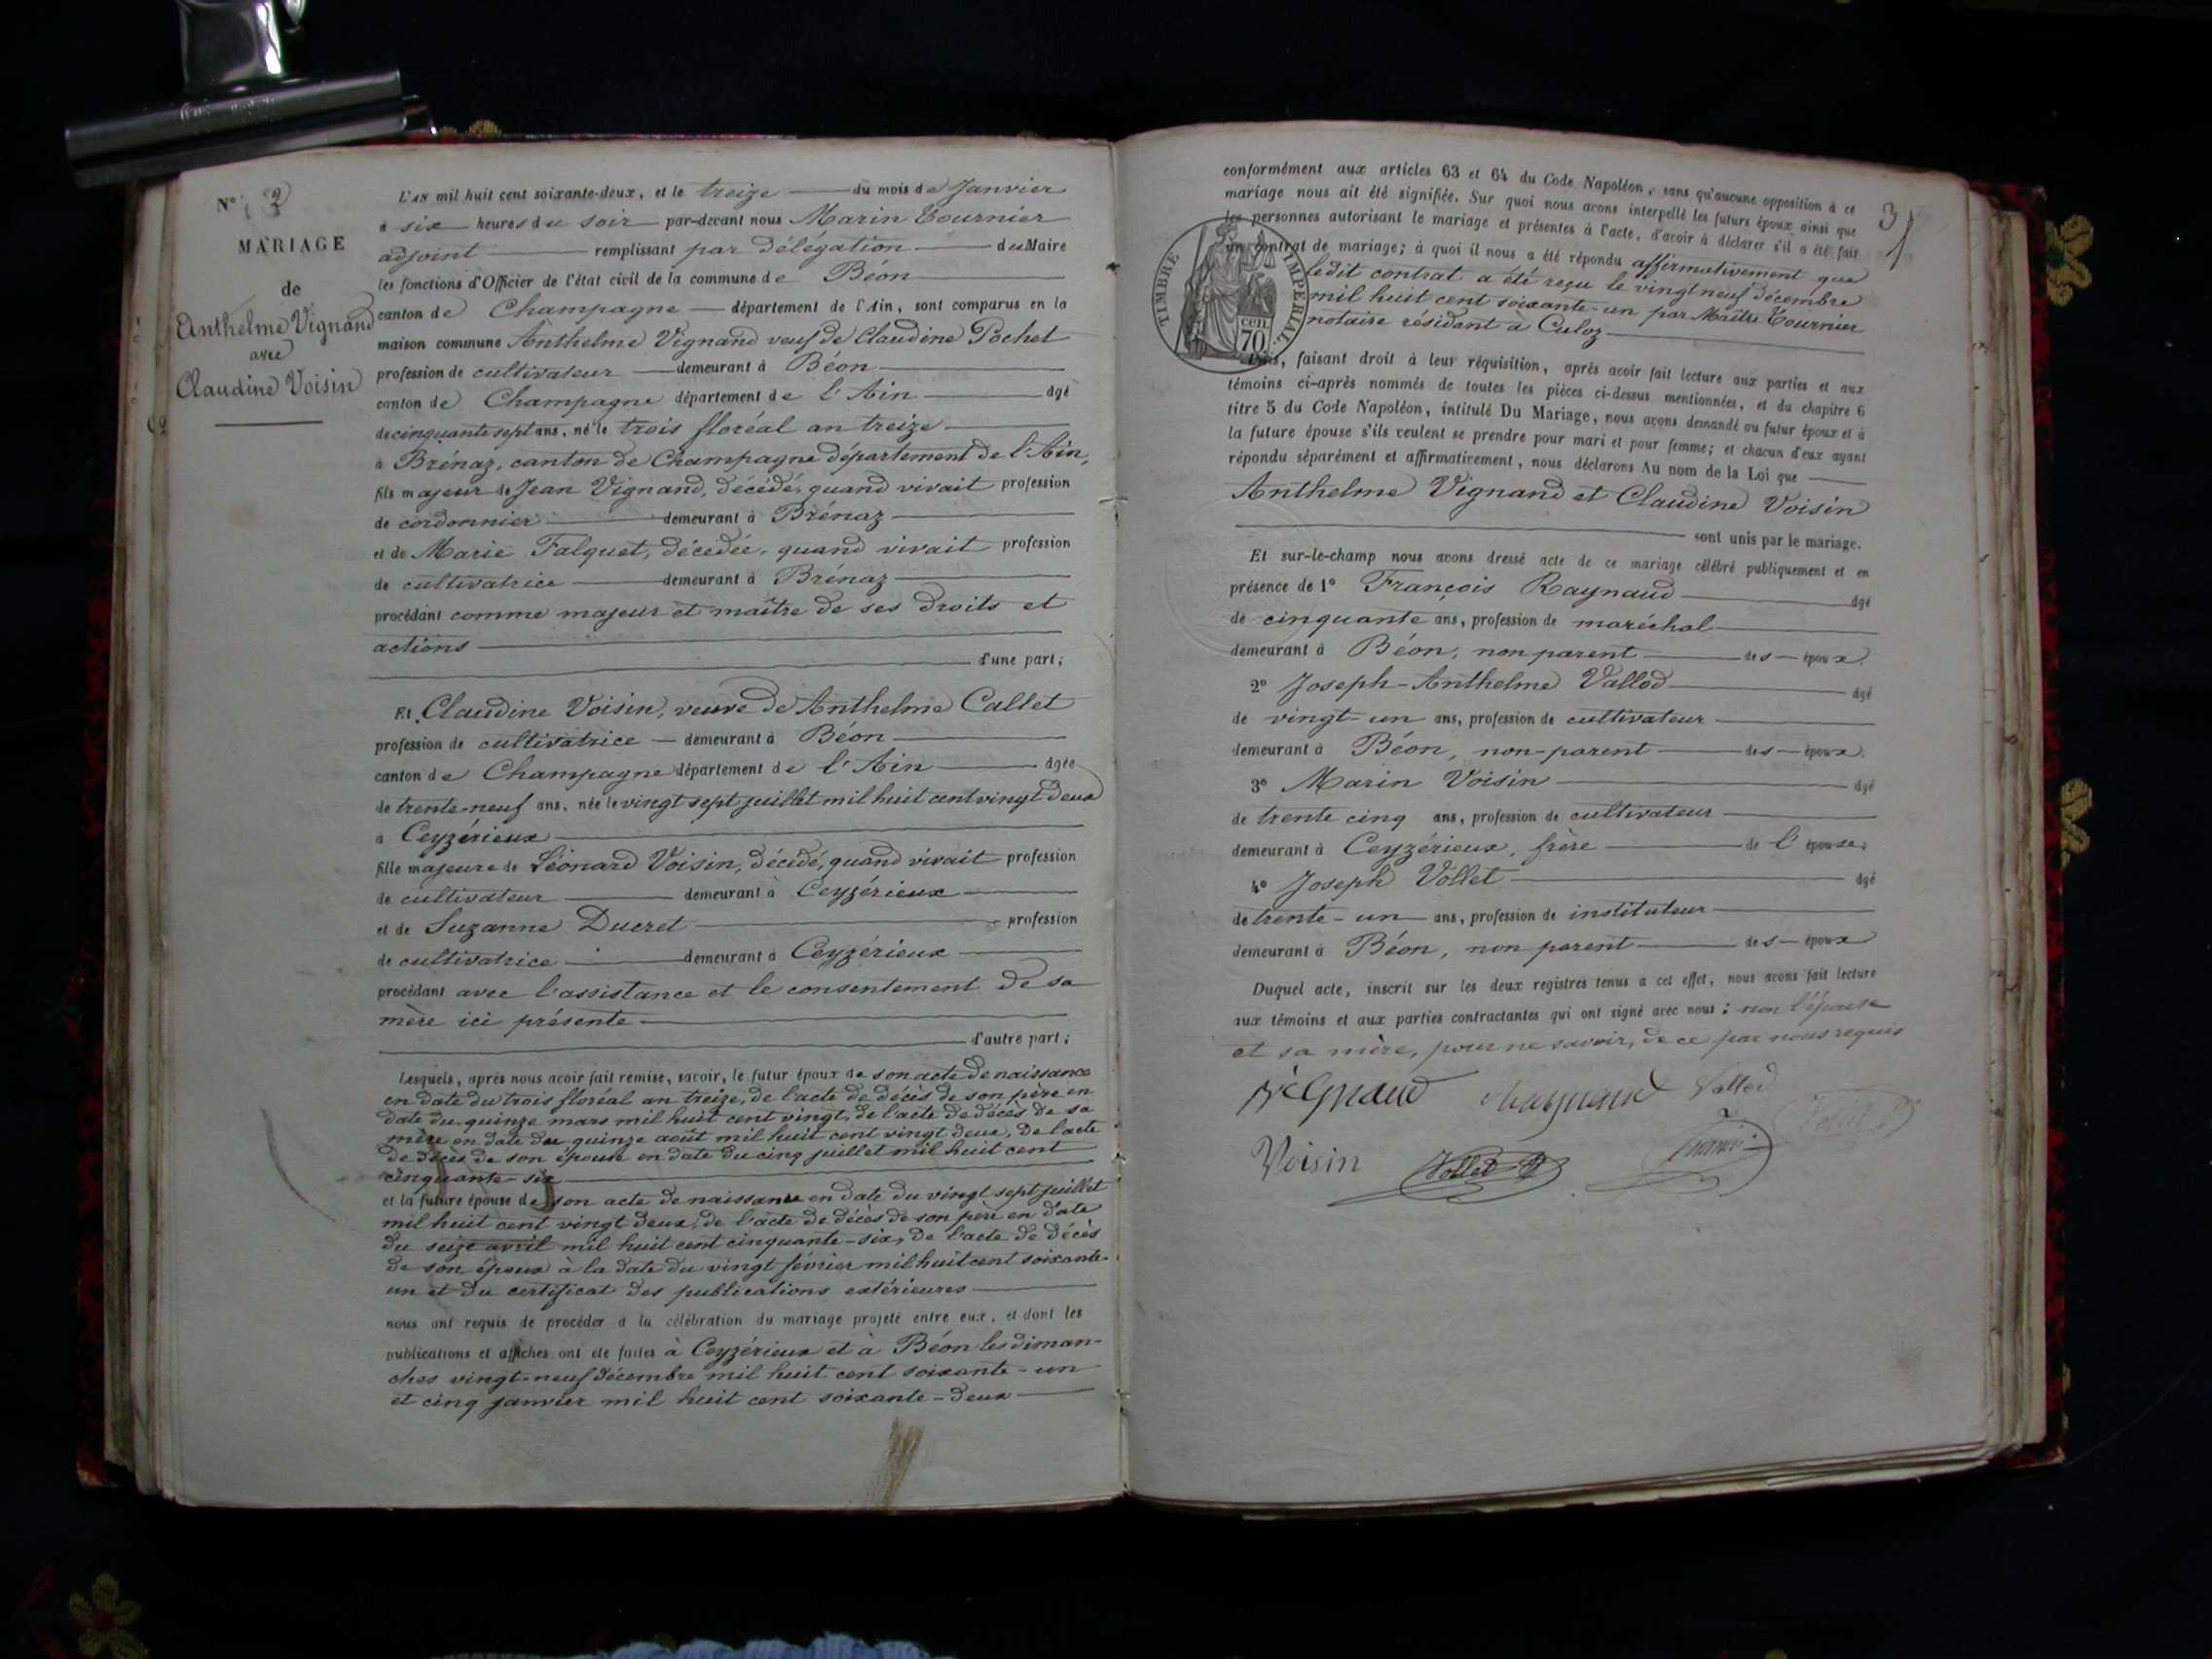 N° 2
MARIAGE
de
Anthelme Vignand
avec
Claudine Voisin
L'AN mil huit cent soixante-deux, et le treize du mois de Janvier
à six heures du soir par-devant nous Marin Tournier
adjoint remplissant par délégation du Maire
les fonctions d'Officier de l'état civil de la commune de Béon
canton de Champagne département de l'Ain, sont comparus en la
maison commune Anthelme Vignand veuf de Claudine Pochet
profession de cultivateur demeurant à Béon
canton de Champagne département de l'Ain âgé
de cinquante sept ans, né le trois floréal an treize
à Brénaz, canton de Champagne département de l'Ain,
fils majeur de Jean Vignand, décédé, quand vivait profession
de cordonnier demeurant à Brénaz
et de Marie Falquet, décedée, quand vivait profession
de cultivatrice demeurant à Brénaz
procédant comme majeur et maître de ses droits et
actions
d'une part;
Et Claudine Voisin, veuve de Anthelme Callet
profession de cultivatrice demeurant à Béon
canton de Champagne département de l'Ain âgée
de trente-neuf ans, née le vingt sept juillet mil huit cent vingt deux
à Ceyzérieux
fille majeure de Léonard Voisin, décédé, quand vivait profession
de cultivateur demeurant à Ceyzérieux
et de Suzanne Ducret profession
de cultivatrice demeurant à Ceyzérieux
procédant avec l'assistance et le consentement de sa
mère ici présente
d'autre part;
Lesquels, après nous avoir fait remise, savoir, le futur époux de son acte de naissance
en date du trois floréal an treize, de l'acte de décès de son père en
date du quinze mars mil huit cent vingt, de l'acte de décès de sa
mère en date du quinze août mil huit cent vingt deux, de l'acte
de décès de son épouse en date du cinq juillet mil huit cent
cinquante-six
et la future épouse de son acte de naissance en date du vingt sept juillet
mil huit cent vingt deux, de l'acte de décès de son père en date
du seize avril mil huit cent cinquante-six, de l'acte de décès
de son époux à la date du vingt février mil huit cent soixante
un et du certificat des publications extérieures
nous ont requis de procéder à la célébration du mariage projeté entre eux, et dont les
publications et affiches ont été faites à Ceyzérieux et à Béon les diman-
ches vingt-neuf décembre mil huit cent soixante-un
et cinq janvier mil huit cent soixante-deux
3
conformément aux articles 63 et 64 du Code Napoléon, sans qu'aucune opposition à ce
mariage nous ait été signifiée. Sur quoi nous avons interpellé les futurs époux ainsi que
les personnes autorisant le mariage et présentes à l'acte, d'avoir à déclarer s'il a été fait
un contrat de mariage; à quoi il nous a été répondu affirmativement que
ledit contrat a été reçu le vingt neuf décembre
mil huit cent soixante-un par Maître Tournier
notaire résidant à Culoz
TIMBRE IMPERIAL
cen.
70
Puis, faisant droit à leur réquisition, après avoir fait lecture aux parties et aux
témoins ci-après nommés de toutes les pièces ci-dessus mentionnées, et du chapitre 6
titre 5 du Code Napoléon, intitulé Du Mariage, nous avons demandé au futur époux et à
la future épouse s'ils veulent se prendre pour mari et pour femme; et chacun d'eux ayant
répondu séparément et affirmativement, nous déclarons Au nom de la Loi que
Anthelme Vignand et Claudine Voisin
sont unis par le mariage.
Et sur-le-champ nous avons dressé acte de ce mariage célébré publiquement et en
présence de 1° François Raynaud âgé
de cinquante ans, profession de maréchal
demeurant à Béon, non parent des époux.
2° Joseph-Anthelme Vallod âgé
de vingt-un ans, profession de cultivateur
demeurant à Béon, non-parent des époux.
3° Marin Voisin âgé
de trente cinq ans, profession de cultivateur
demeurant à Ceyzérieux, frère de l'épouse;
4° Joseph Vollet âgé
de trente-un ans, profession de instituteur
demeurant à Béon, non parent des époux
Duquel acte, inscrit sur les deux registres tenus a cet effet, nous avons fait lecture
aux témoins et aux parties contractantes qui ont signé avec nous; non l'épouse
et sa mère, pour ne savoir, de ce par nous requis
ViGnaud Raynaud Vallod
Voisin Vollet